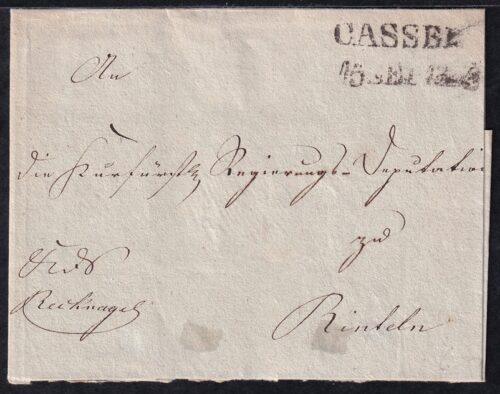 CASSEL
15 SEP
An
die Kurfürstl. Regierungs-Deputation
zu
Rinteln
Recknagel